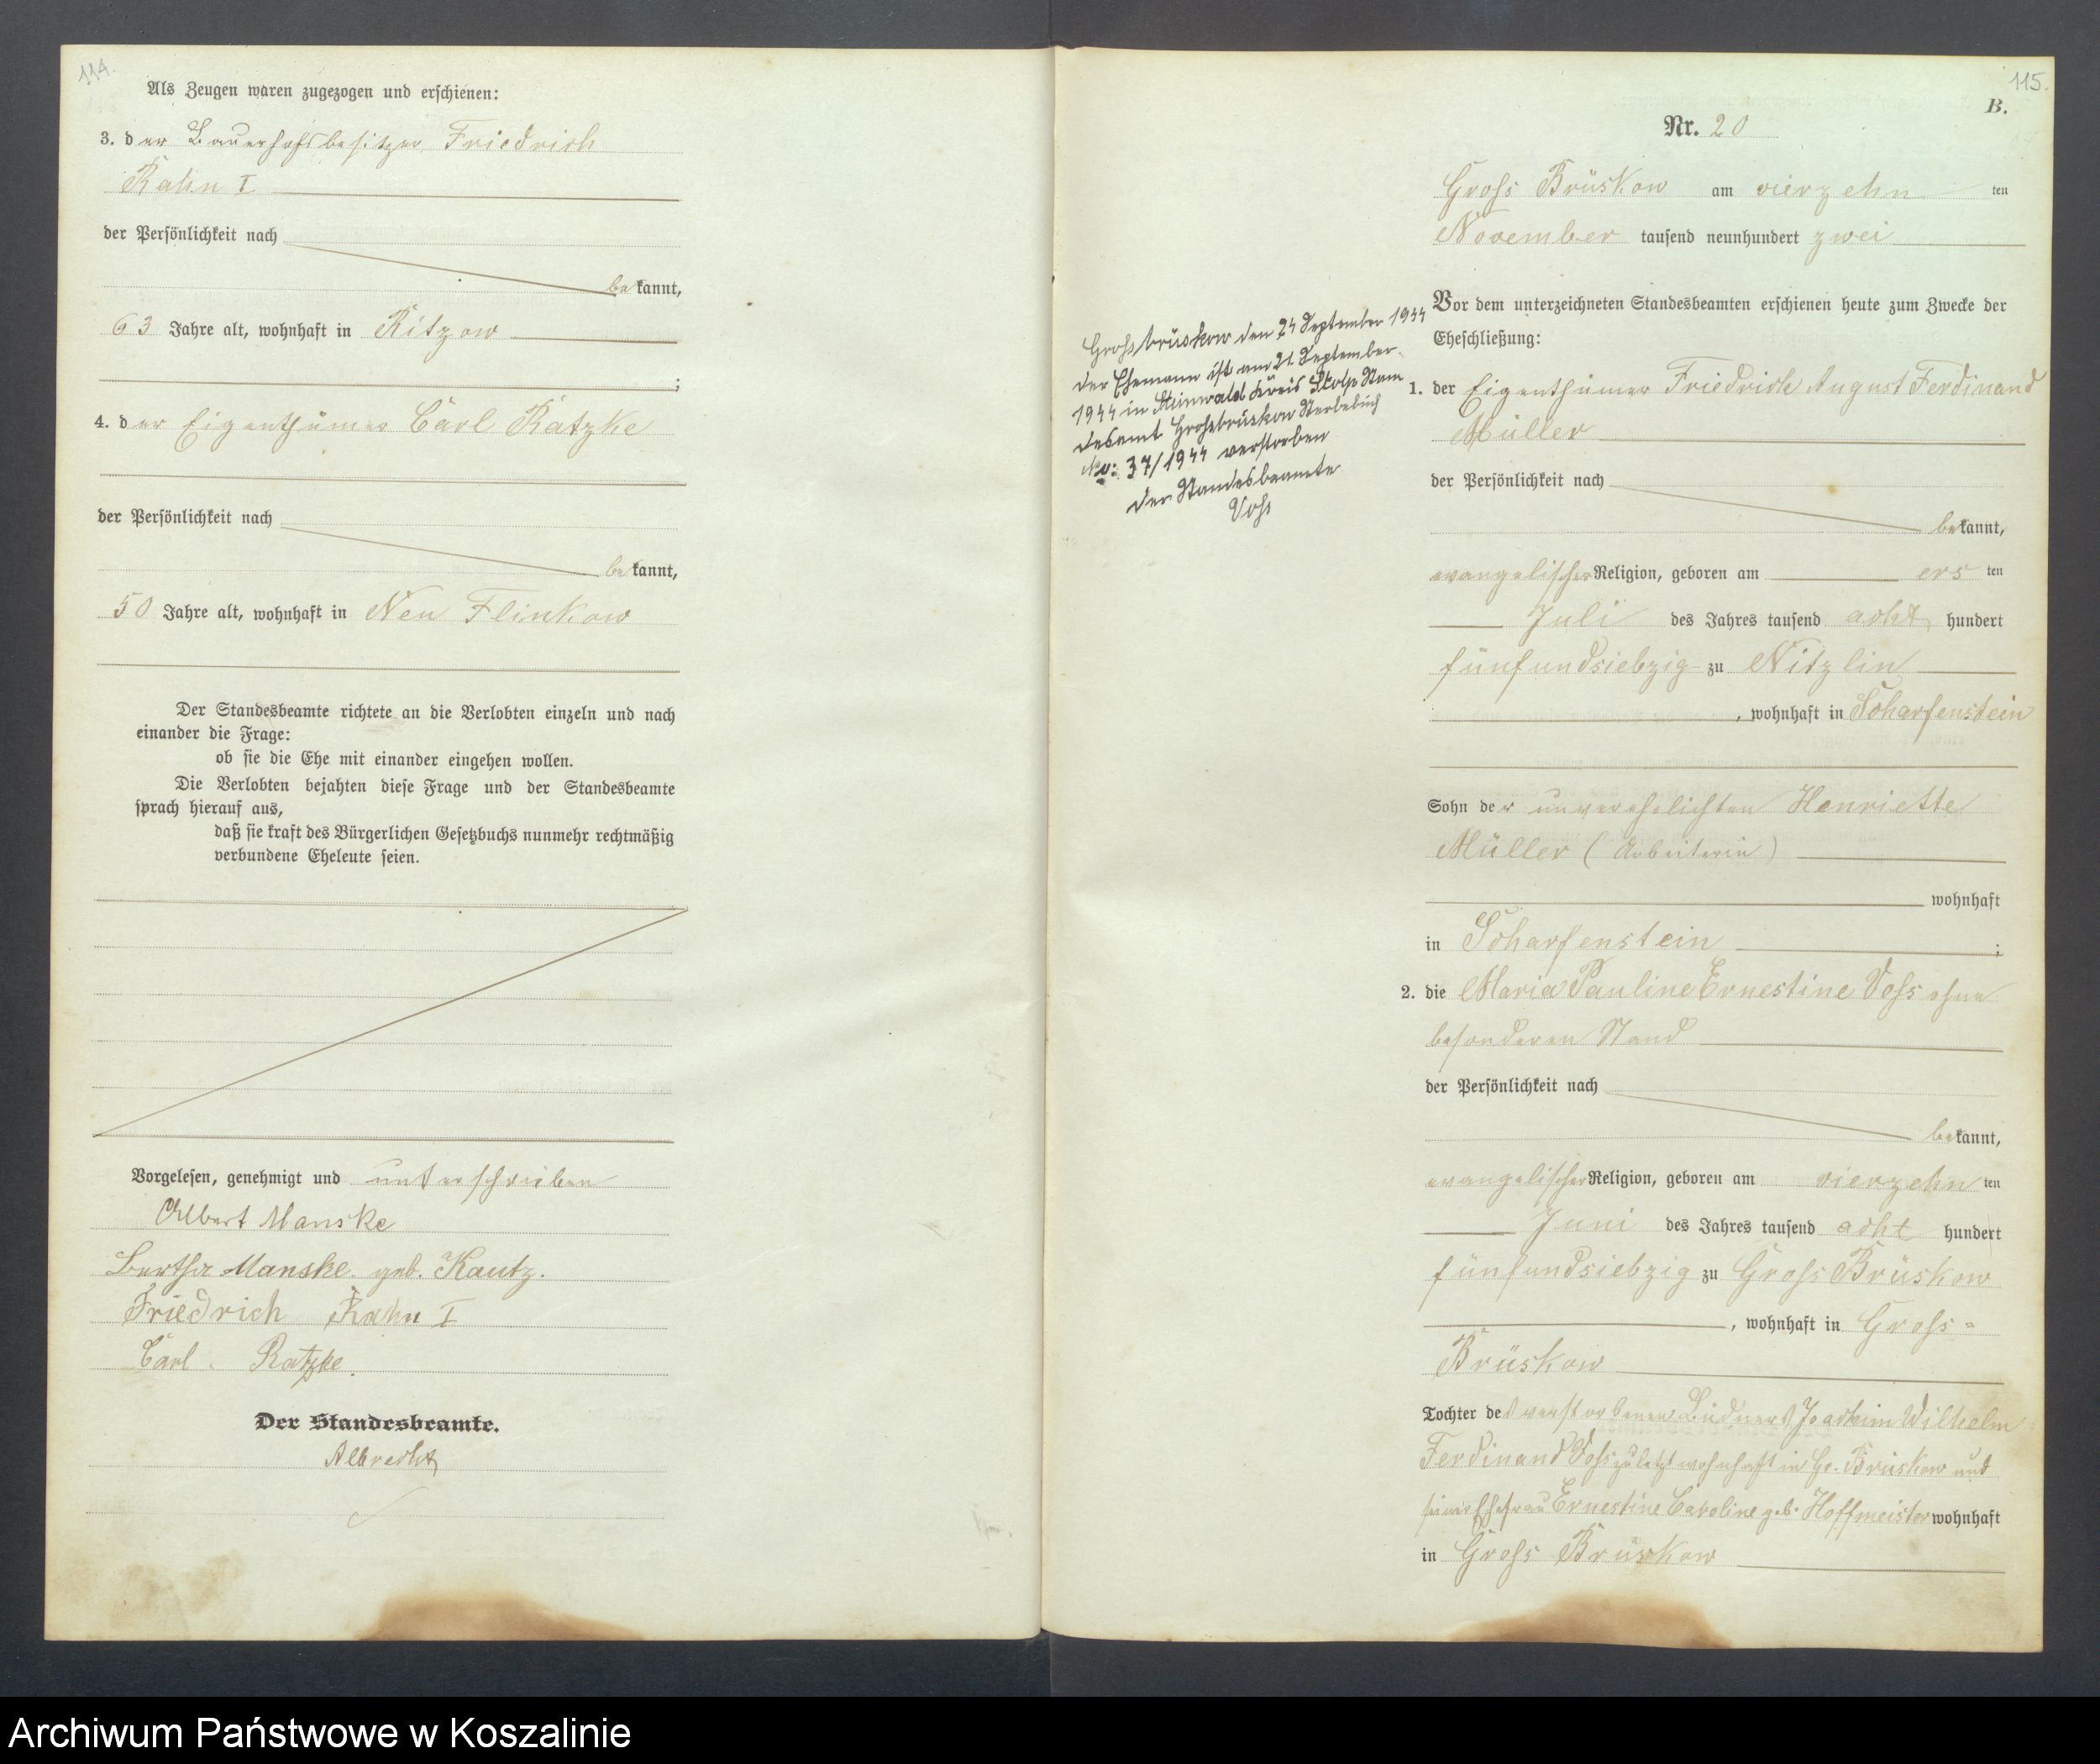 114.
Als Zeugen waren zugezogen und erschienen:
3. der Bauerhofsbesitzer Friedrich
Rahn I
der Persönlichkeit nach
bekannt,
63 Jahre alt, wohnhaft in Ritzow
;
4. der Eigenthümer Carl Ratzke
der Persönlichkeit nach
bekannt,
50 Jahre alt, wohnhaft in Neu Flinkow
Der Standesbeamte richtete an die Verlobten einzeln und nach
einander die Frage:
ob sie die Ehe mit einander eingehen wollen.
Die Verlobten bejahten diese Frage und der Standesbeamte
sprach hierauf aus,
daß sie kraft des Bürgerlichen Gesetzbuchs nunmehr rechtmäßig
verbundene Eheleute seien.
Vorgelesen, genehmigt und unterschrieben
Albert Manske
Bertha Manske geb. Kautz.
Friedrich Rahn I
Carl Ratzke.
Der Standesbeamte.
Albrecht
115.
B.
Nr. 20
Gross Brüskow am vierzehn ten
November tausend neunhundert zwei
Vor dem unterzeichneten Standesbeamten erschienen heute zum Zwecke der
Eheschließung:
1. der Eigenthümer Friedrich August Ferdinand
Müller
der Persönlichkeit nach
bekannt,
evangelischer Religion, geboren am ers ten
Juli des Jahres tausend acht hundert
fünfundsiebzig zu Nitzlin
, wohnhaft in Scharfenstein
Sohn der unverehelichten Henriette
Müller (Arbeiterin)
wohnhaft
in Scharfenstein ;
2. die Maria Pauline Ernestine Voss ohne
besonderen Stand
der Persönlichkeit nach
bekannt,
evangelischer Religion, geboren am vierzehn ten
Juni des Jahres tausend acht hundert
fünfundsiebzig zu Gross Brüskow
, wohnhaft in Gross-
Brüskow
Tochter des verstorbenen Büdners Joachim Wilhelm
Ferdinand Voss zuletzt wohnhaft in Gr. Brüskow und
seiner Ehefrau Ernestine Caroline geb. Hoffmeister wohnhaft
in Gross Brüskow
Grossbrüskow den 24 September 1944
Der Ehemann ist am 21 September
1944 in Steinwald Kreis Stolp Stan
desamt Grossbrüskow Sterbebuch
No: 37/1944 verstorben
Der Standesbeamte
Voss
Archiwum Państwowe w Koszalinie